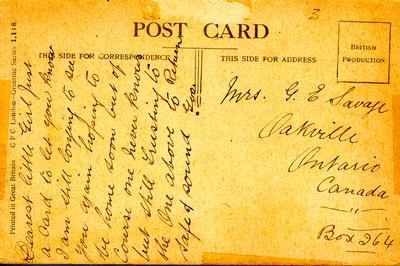 3
POST CARD
THIS SIDE FOR CORRESPONDENCE
THIS SIDE FOR ADDRESS
BRITISH
PRODUCTION
Printed in Great Britain C P C London—Greeting Series 1.118.
Dearest little Girl Just
a Card to let you know
I am still longing to see
you again hoping to
be home soon but of
Course one never knows
but still trusting to
the One above to Return
safe & sound
Mrs. G. E Savage
Oakville
Ontario
Canada
Box 264